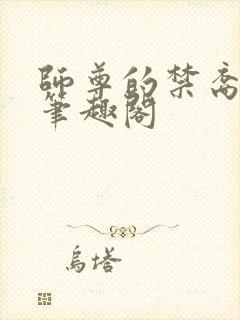 師尊的禁
筆趣閣
烏塔